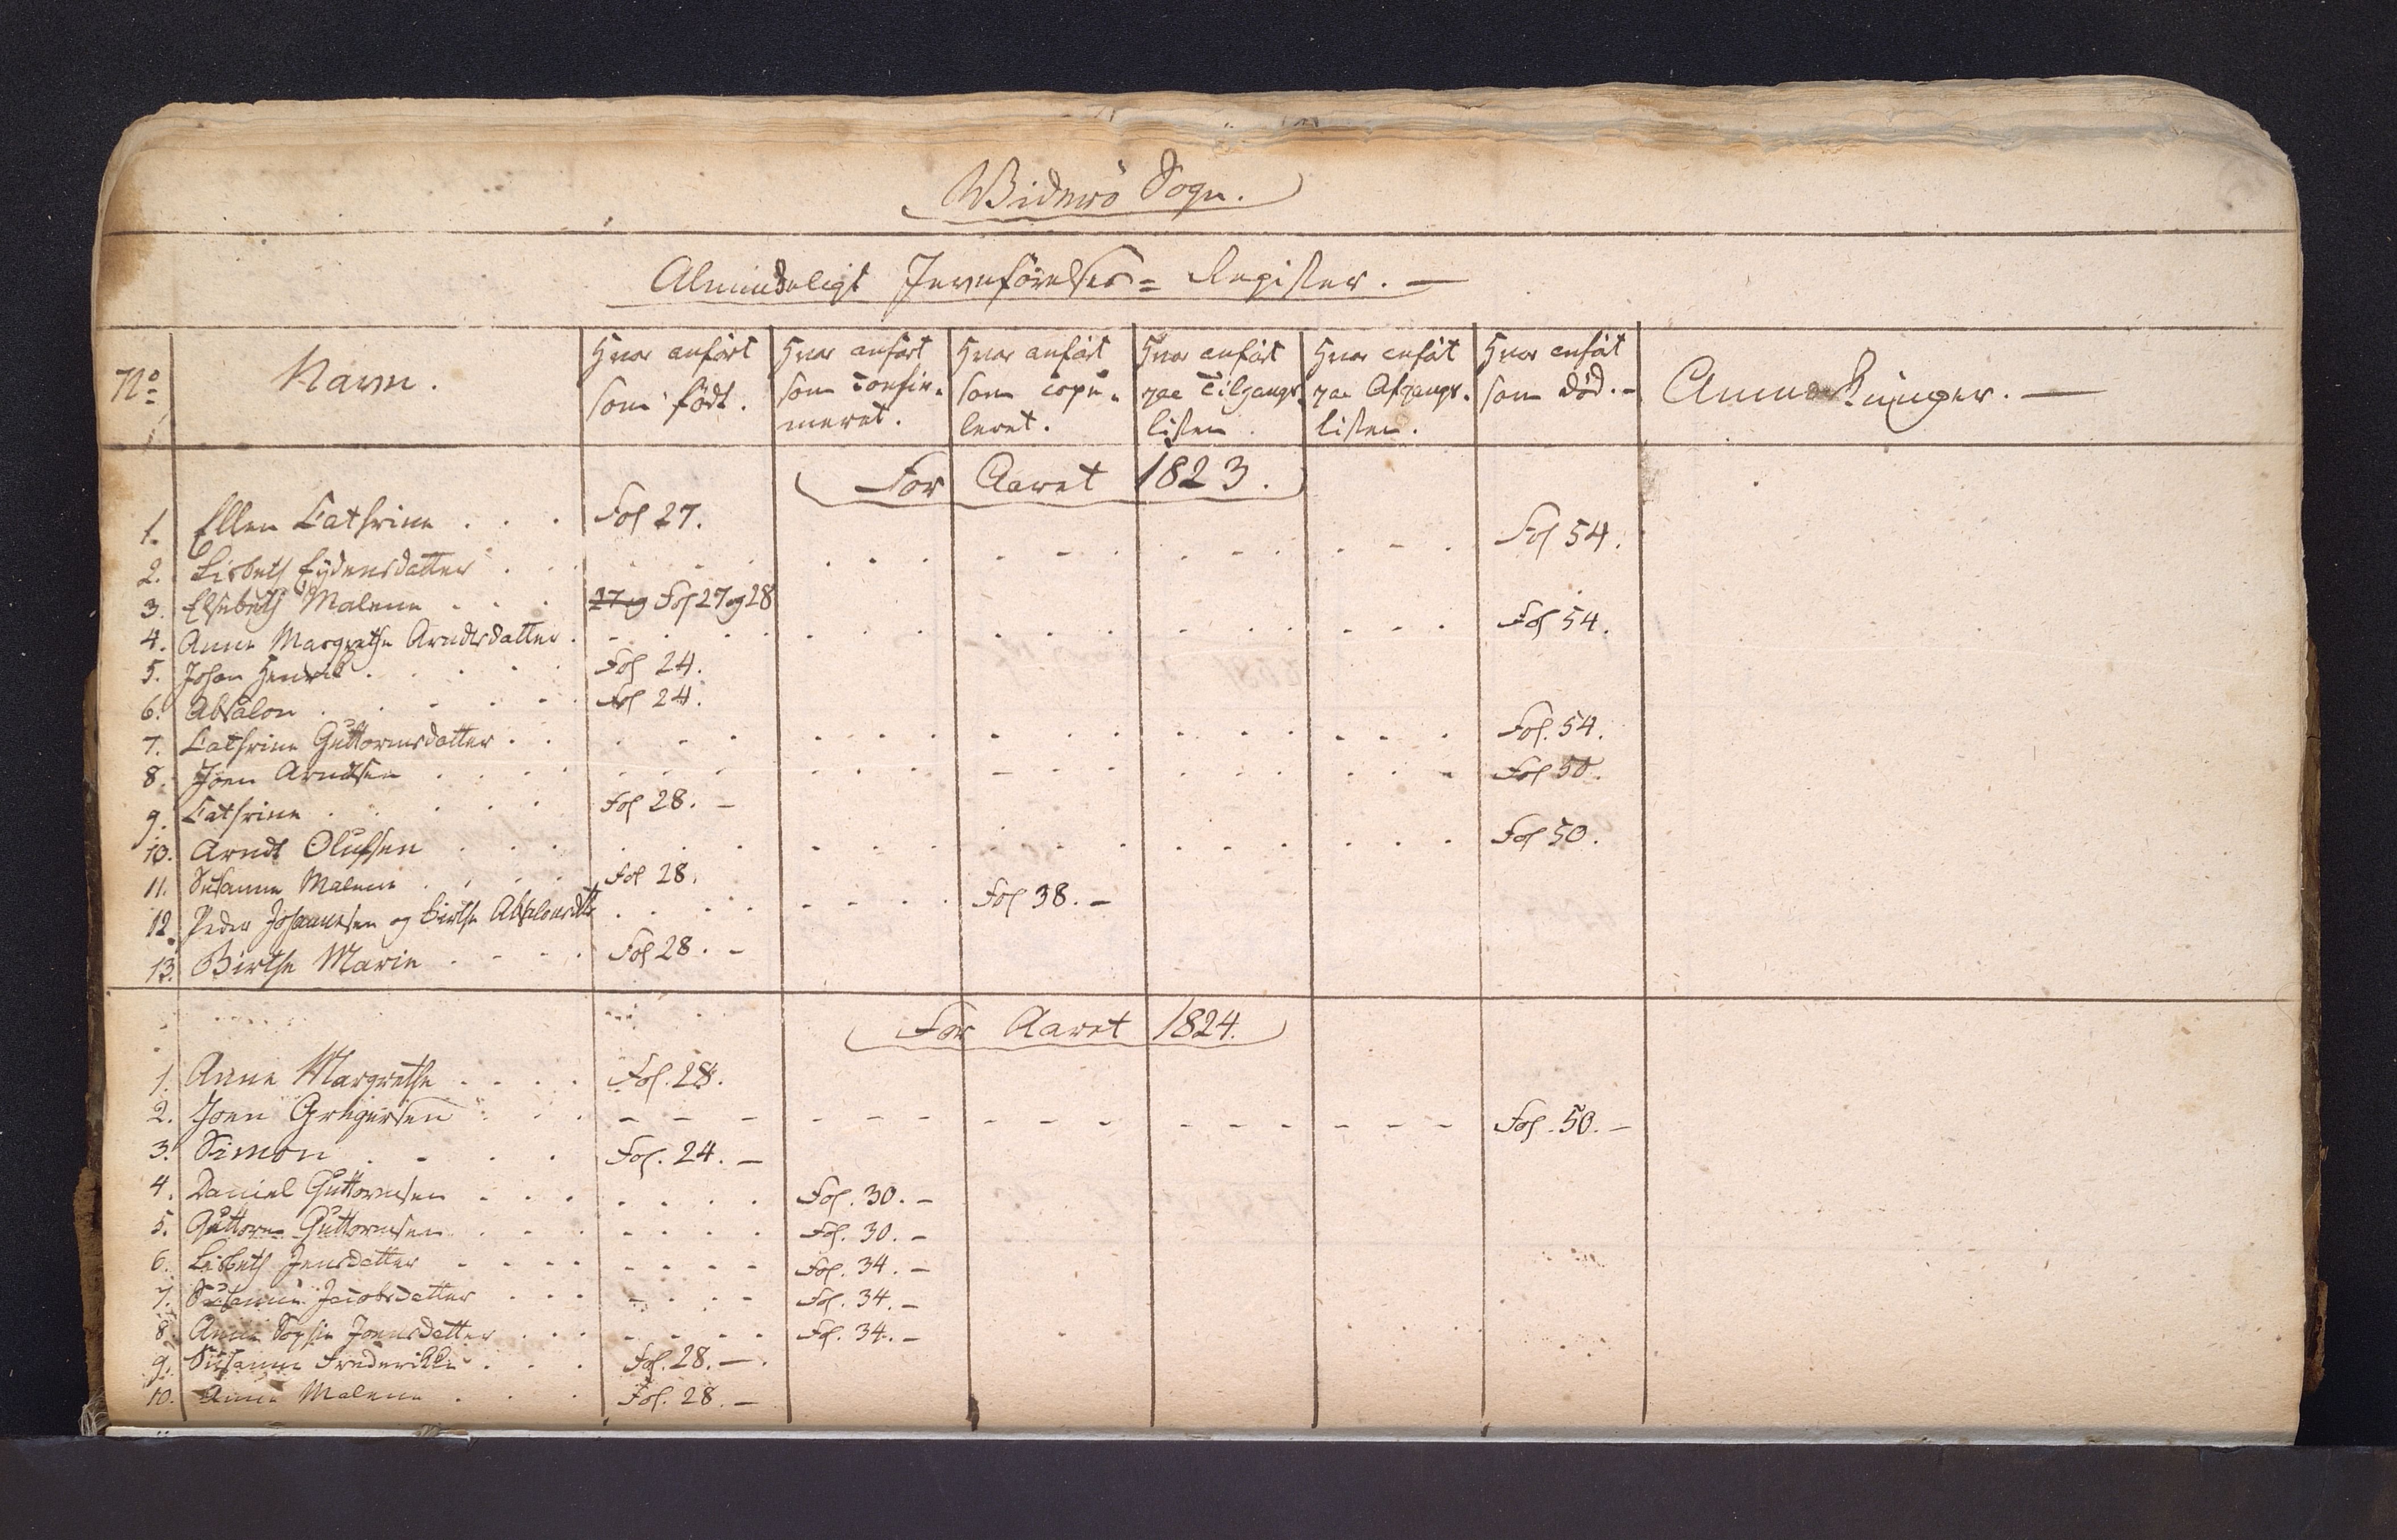 Widerø Sogn.
Almindeligt Jevnførelses= Register. —
No
Navn.
Hvor anført som født.
Hvor anført som confir- meret.
Hvor anført som copu- leret.
Hvor anført paa Tilgangs- listen.
Hvor anført paa Afgangs- listen.
Hvor anført som død. -
Anmærkninger. —
For Aaret 1823.
1. Ellen Cathrine . . . Fol 27.
2. Lisbeth Eydensdatter . . . . . . . . . . . . . . . Fol 54.
3. Elsebeth Malene . . . 27 og Fol 27 og 28
4. Anne Margrethe Arndtsdatter . . . . . . . . . . . . Fol 54.
5. Johan Henrik . . . . Fol 24.
6. Absalon . . . . . Fol 24.
7. Cathrine Guttormsdatter . . . . . . . . . . . . Fol. 54.
8. Joen Arndtsen . . . . . . . . . . . . . . Fol 50.
9. Cathrine . . . . . Fol 28. -
10. Arndt Olufsen . . . . . . . . . . . . . . Fol 50.
11. Susanne Malene . . . . Fol 28.
12. Peder Johannesen og Birthe Absalonsdtr . . . . . . . . Fol 38. -
13. Birthe Marie . . . . Fol 28. -
For Aaret 1824.
1. Anne Margrethe . . . . Fol. 28.
2. Joen Gregersen . . . - - - - - - - - - - - - - - - Fol. 50. -
3. Simon . . . . Fol. 24. -
4. Daniel Guttormsen . . . . . . . Fol. 30. -
5. Guttorm Guttormsen . . . . . . . Fol. 30. -
6. Lisbeth Jensdatter - - - - - - - - Fol. 34. -
7. Susanne Jacobsdatter . . . - . . . Fol. 34. -
8. Anne Sophie Joensdatter . . . . . . . Fol. 34. -
9. Susanne Frederikke . . . Fol. 28. -.
10. Anne Malene . . . Fol. 28. -